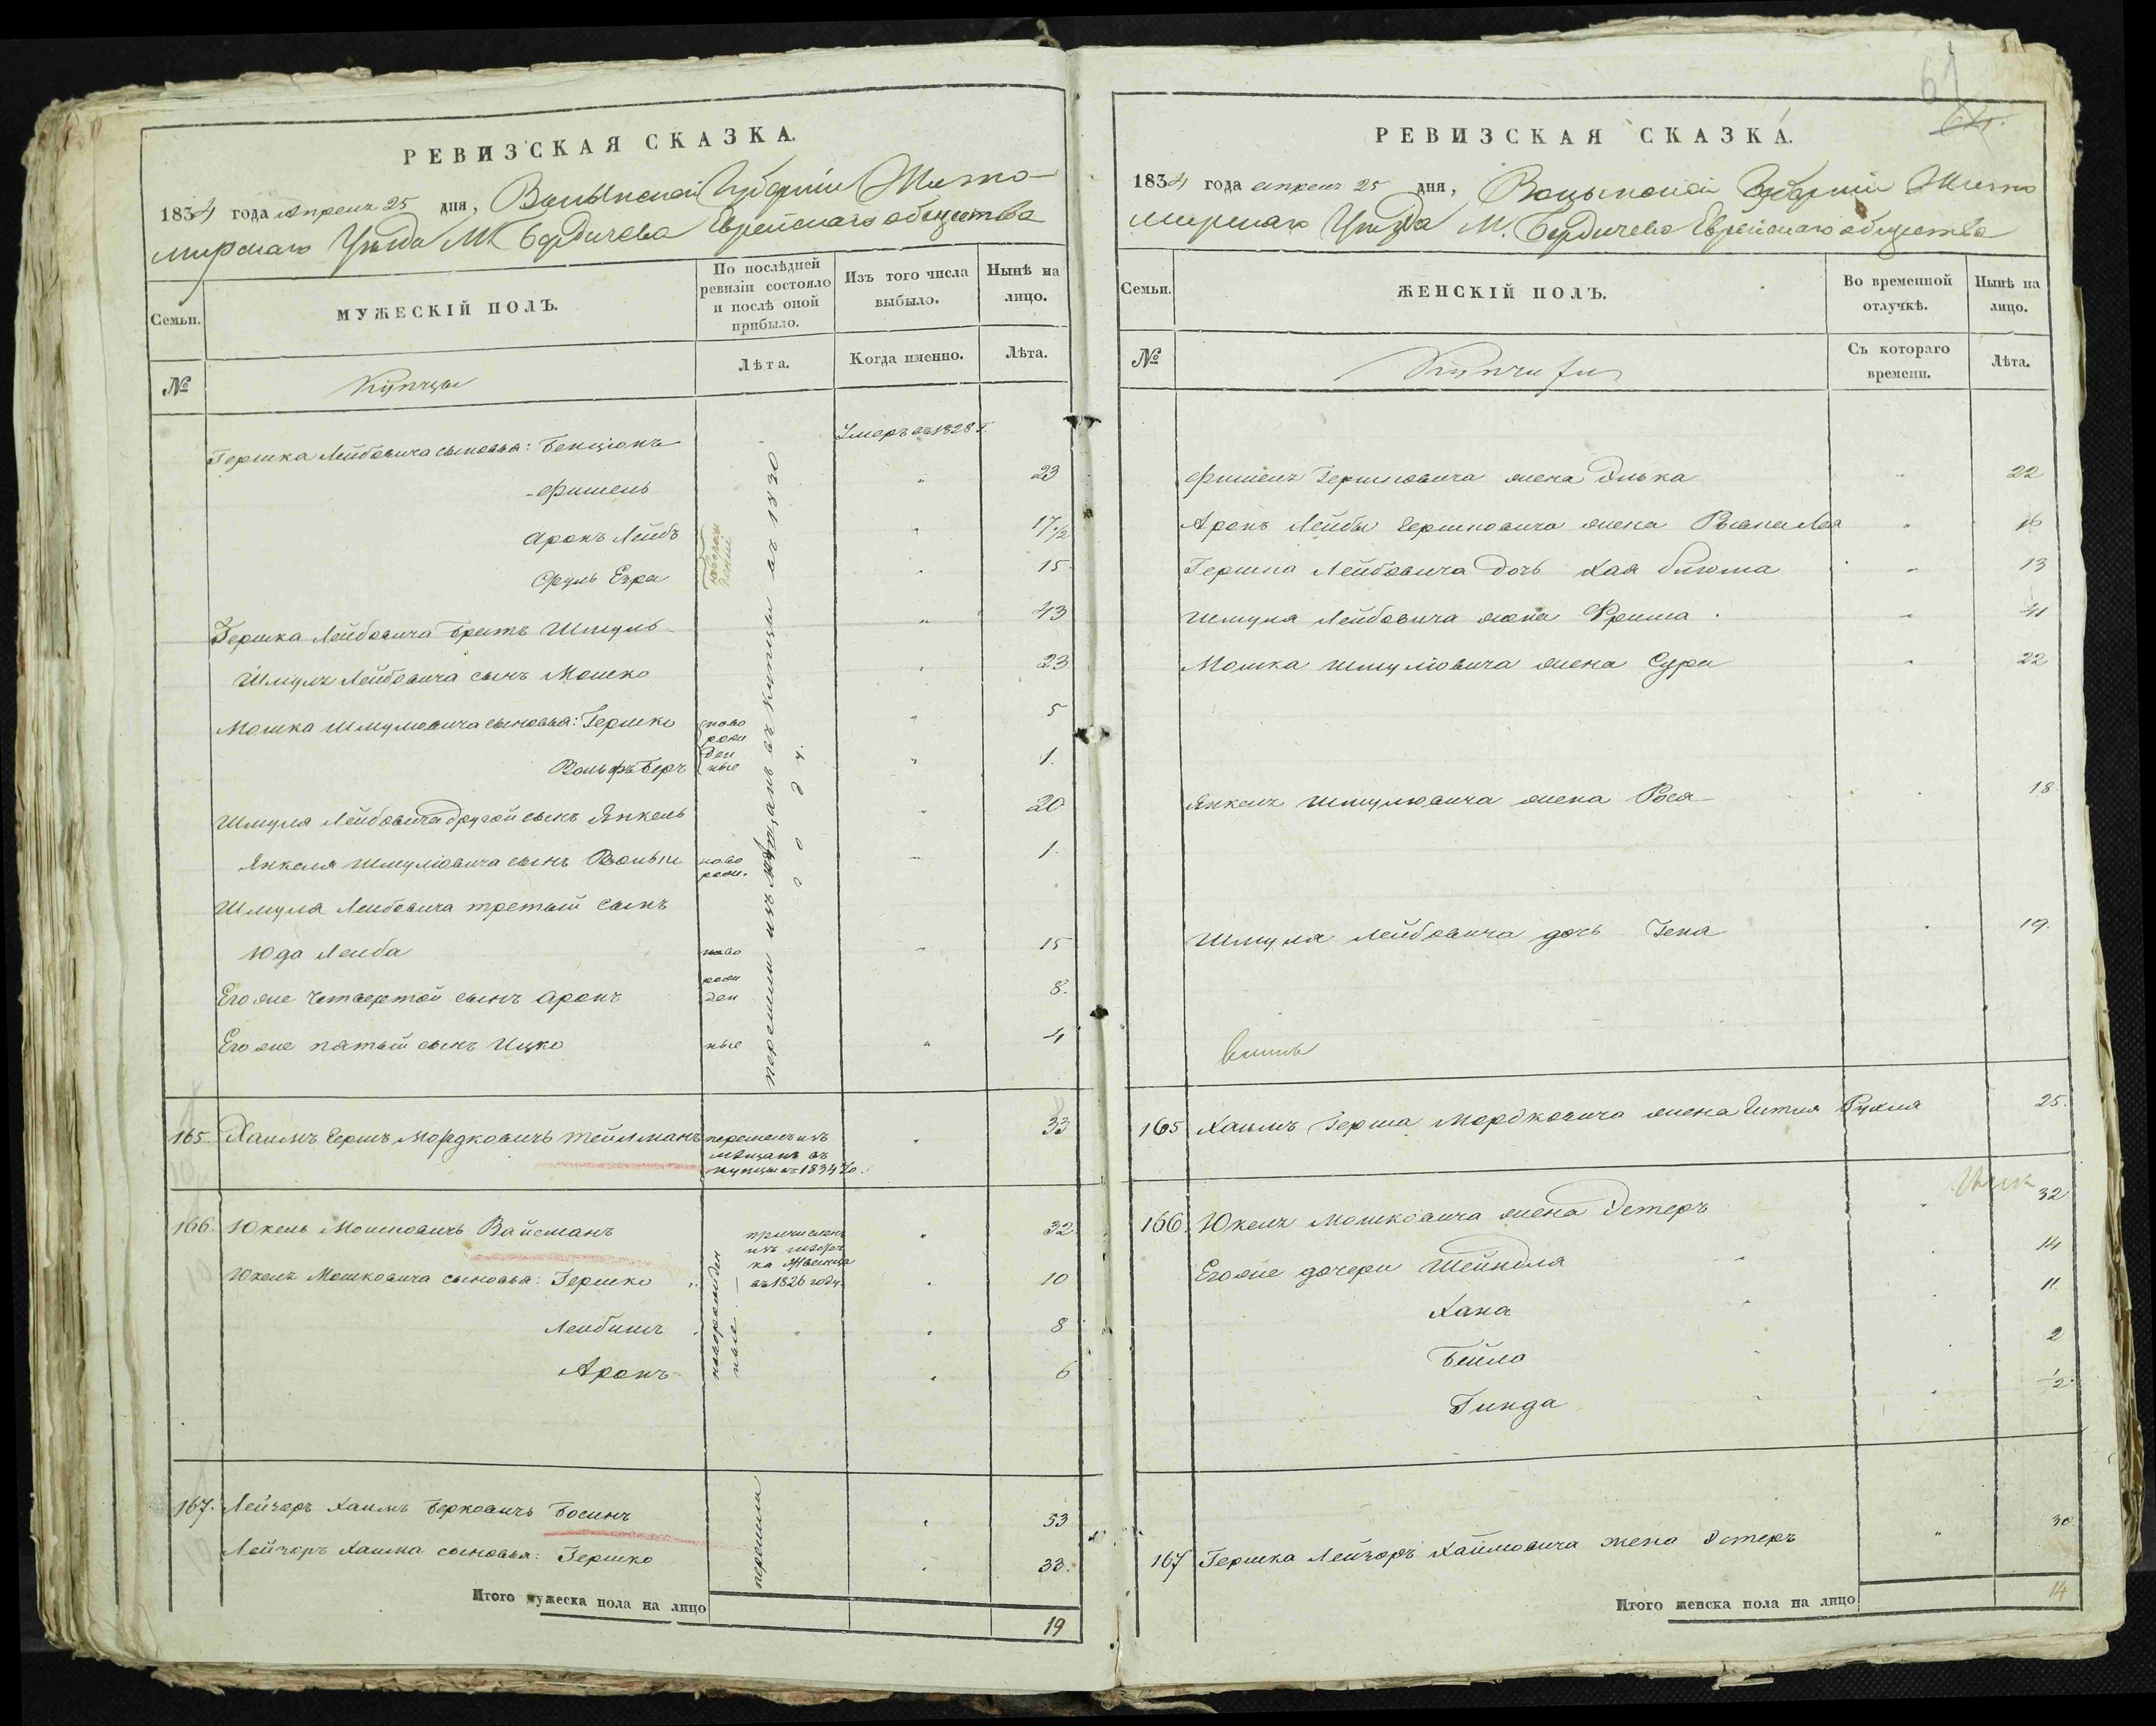 РЕВИЗСКАЯ СКАЗКА.
1834 года апреля 25 дня, Волынской Губерніи Жито-
мирскаго Уѣзда М. Бердичева Еврейскаго общества
Семьи.
МУЖЕСКІЙ ПОЛЪ.
По послѣдней ревизіи состояло и послѣ оной прибыло.
Изъ того числа выбыло.
Нынѣ на лицо.
№
Купцы
Лѣта.
Когда именно.
Лѣта.
Гершка Лейбовича сыновья: Бенціонъ " Умеръ въ 1828 г.
Фишель " 23
Аронъ Лейбъ " 17 1/2
Сруль Езра 15
Гершка Лейбовича братъ Шмуль " 43
Шмуля Лейбовича сынъ Мошко " 23
Мошка Шмулиовича сыновья: Гершко ново рож " 5
Вольфъ Беръ ден ные " 1.
Шмуля Лейбовича другой сынъ Янкель 20
Янкеля Шмулиовича сынъ Вольки ново рож. 1.
Шмуля Лейбовича третьий сынъ
Юда Лейба ново 15
Его же четвертой сынъ Аронъ рож ден 8.
Его же пятый сынъ Ицко ные " 4
перешли изъ мѣщанъ въ купцы въ 1830
году.
165. Хаимъ Гершъ Мордковичъ Тейлманъ перешелъ изъ мѣщанъ въ купцы въ 1834 го. 33
166. Юкель Мошковичъ Вайсманъ причисленъ " 32
въ 1826 году
Юкеля Мошковича сыновья: Гершко 10
Лейбишъ 8
Аронъ 6
новорожден
ные
167. Лейзоръ Хаимъ Берковичъ Босинъ 53
Лейзоръ Хаима сыновья: Гершко 33.
перешли
Итого мужеска пола на лицо
19
61
РЕВИЗСКАЯ СКАЗКА.
1834 года апреля 25 дня, Волынской Губерніи Жито
мирскаго Уѣзда М. Бердичева Еврейскаго общества
Семьи.
ЖЕНСКІЙ ПОЛЪ.
Во временной отлучкѣ.
Нынѣ на лицо.
№
Купчихи
Съ котораго времени.
Лѣта.
Фишеля Гершковича жена Элька 22
Аронъ Лейбы Гершковича жена Лея 16
Гершка Лейбовича дочь Хая Блюма 13
Шмуля Лейбовича жена Фрима 41
Мошка Шмулиовича жена Сура 22
Янкеля Шмулиовича жена Роса 18
Шмуля Лейбовича дочь Гена 19.
165 Хаимъ Герша Мордковича жена Гитля Рухля 25.
166. Юкеля Мошковича жена Эстеръ 32
Его же дочери Шейндля 14
Хана 11
Бейла 2
Гинда 1/2
167 Гершка Лейзоръ Хаимовича жена Эстеръ " 30
Итого женска пола на лицо
14